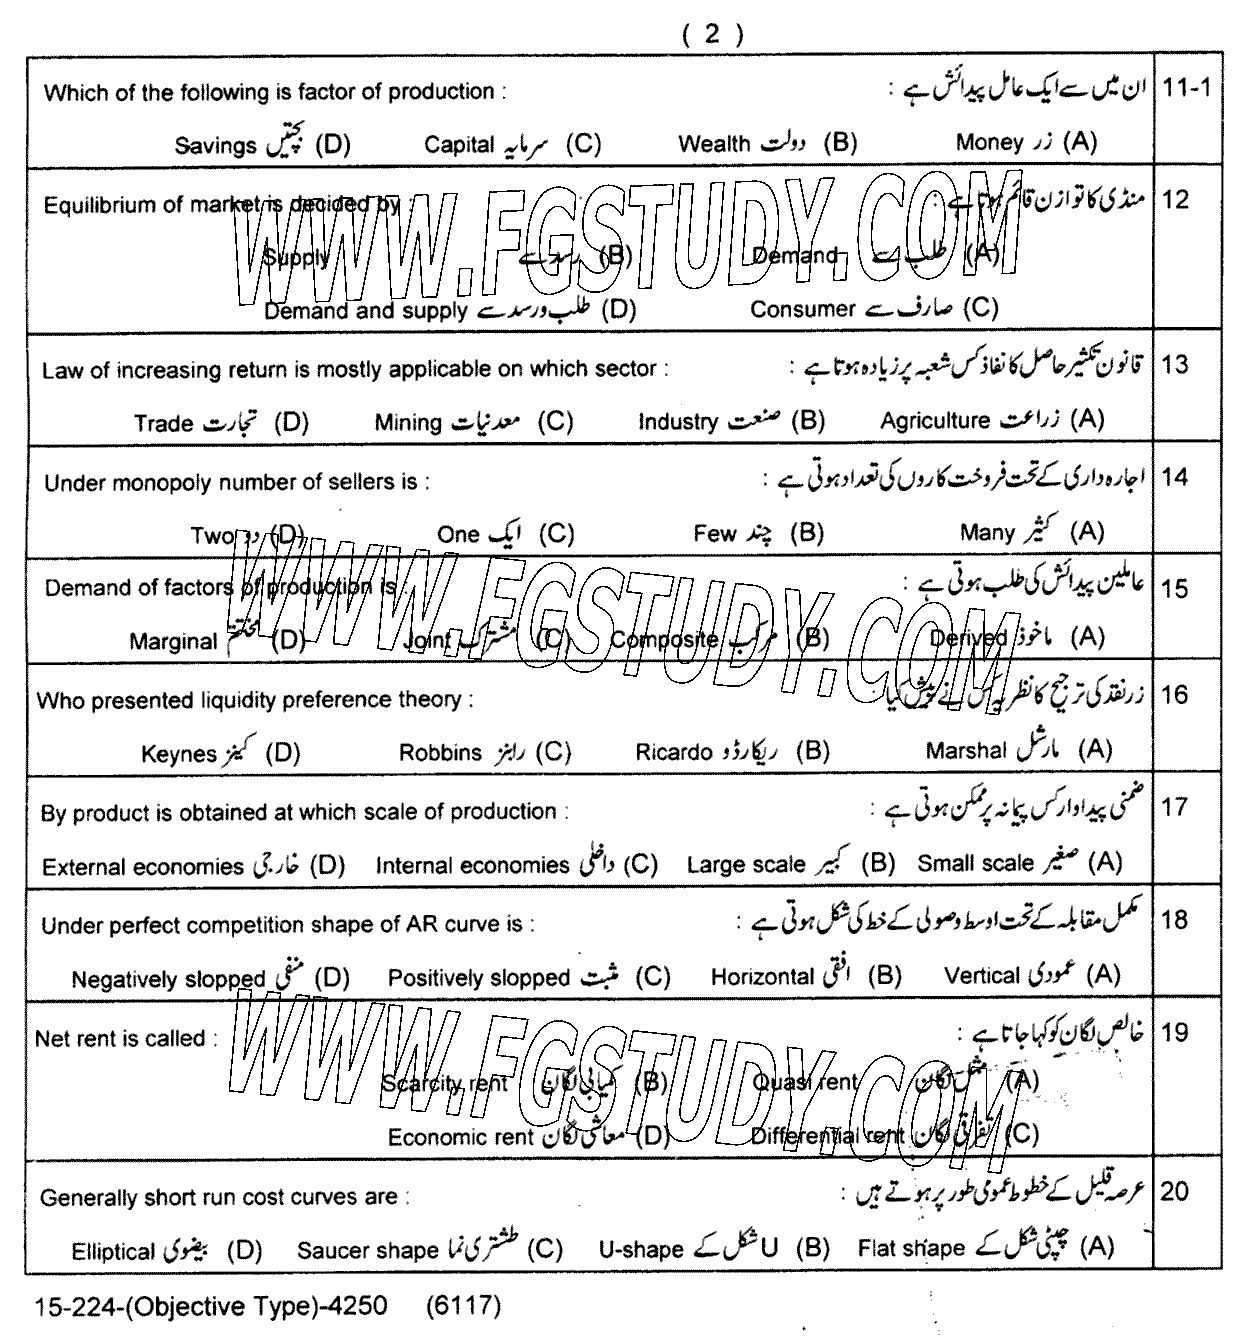 ( 2 )
11-1 ان میں سے ایک عامل پیدائش ہے : Which of the following is factor of production :
(A) زر Money (B) دولت Wealth (C) سرمایہ Capital (D) بچتیں Savings
12 منڈی کا توازن قائم ہوتا ہے : Equilibrium of market is decided by :
(A) طلب سے Demand (B) رسد سے Supply
(C) صارف سے Consumer (D) طلب ورسد سے Demand and supply
WWW.FGSTUDY.COM
13 قانون تکثیر حاصل کا نفاذ کس شعبہ پر زیادہ ہوتا ہے : Law of increasing return is mostly applicable on which sector :
(A) زراعت Agriculture (B) صنعت Industry (C) معدنیات Mining (D) تجارت Trade
14 اجارہ داری کے تحت فروخت کاروں کی تعداد ہوتی ہے : Under monopoly number of sellers is :
(A) کثیر Many (B) چند Few (C) ایک One (D) دو Two
15 عاملین پیدائش کی طلب ہوتی ہے : Demand of factors of production is :
(A) ماخوذ Derived (B) مرکب Composite (C) مشترک Joint (D) مختتم Marginal
WWW.FGSTUDY.COM
16 زر نقد کی ترجیح کا نظریہ کس نے پیش کیا : Who presented liquidity preference theory :
(A) مارشل Marshal (B) ریکارڈو Ricardo (C) رابنز Robbins (D) کینز Keynes
17 ضمنی پیداوار کس پیمانہ پر ممکن ہوتی ہے : By product is obtained at which scale of production :
(A) صغیر Small scale (B) کبیر Large scale (C) داخلی Internal economies (D) خارجی External economies
18 مکمل مقابلہ کے تحت اوسط وصولی کے خط کی شکل ہوتی ہے : Under perfect competition shape of AR curve is :
(A) عمودی Vertical (B) افقی Horizontal (C) مثبت Positively slopped (D) منفی Negatively slopped
19 خالص لگان کو کہا جاتا ہے : Net rent is called :
(A) مثل لگان Quasi rent (B) کمیابی لگان Scarcity rent
(C) تفرقی لگان Differential rent (D) معاشی لگان Economic rent
WWW.FGSTUDY.COM
20 عرصہ قلیل کے خطوط عمومی طور پر ہوتے ہیں : Generally short run cost curves are :
(A) چپٹی شکل کے Flat shape (B) U شکل کے U-shape (C) طشتری نما Saucer shape (D) بیضوی Elliptical
15-224-(Objective Type)-4250 (6117)